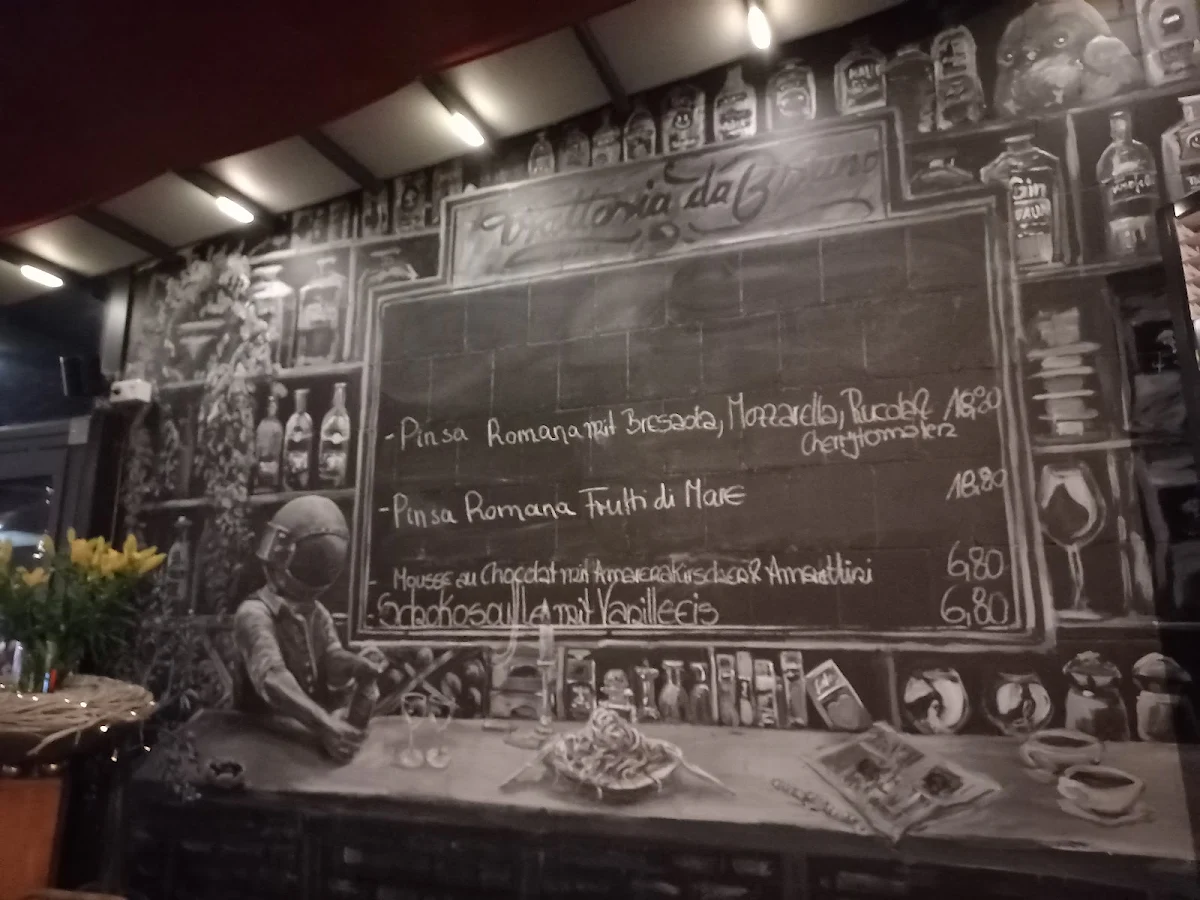 Trattoria da Bruno
- Pinsa Romana mit Bresaola, Mozzarella, Rucola & 18,80
Cherrytomaten
- Pinsa Romana Frutti di Mare 18,80
- Mousse au Chocolat mit Amarenakirschen & Amarettini 6,80
- Schokosouffle mit Vanilleeis 6,80
Gin